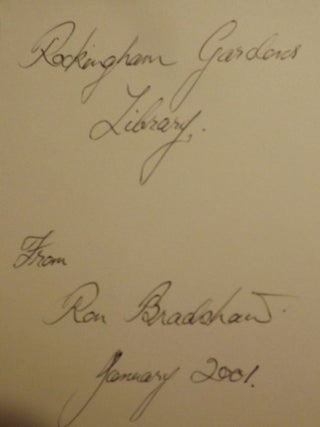 Rockingham Gardens
Library,
From
Ron Bradshaw.
January 2001.